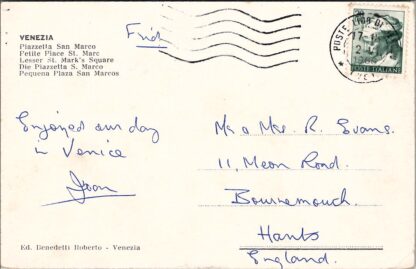 VENEZIA
Piazzetta San Marco
Petite Place St. Marc
Lesser St. Mark's Square
Die Piazzetta S. Marco
Pequena Plaza San Marcos
Frid
POSTE
17-
2-
POSTE ITALIANE
Enjoyed our day
in Venice
Joan
Mr & Mrs. R. Evans.
11, Meon Road.
Bournemouch.
Hants
England.
Ed. Benedetti Roberto - Venezia